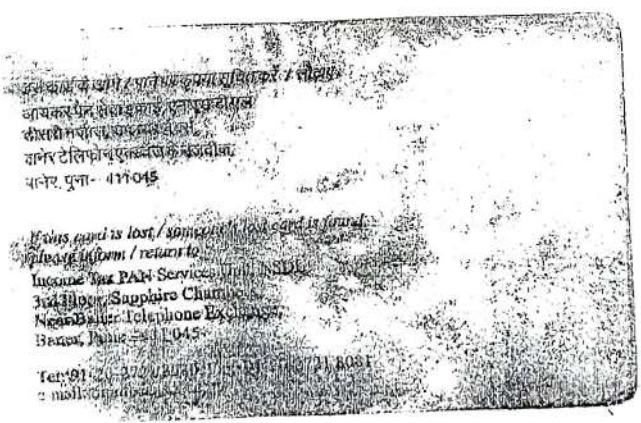 इस कार्ड के खोने / पाने पर कृपया सूचित करें / लौटाएं
आयकर पैन सेवा इकाई, एनएसडीएल
तीसरी मंजील, चेंबर्स,
बानेर टेलिफोन एक्स्चेंज के नजदीक,
बानेर, पुना - 411 045
If this card is lost / someone's lost card is found,
please inform / return to
Income Tax PAN Services Unit, NSDL
3rd Floor, Sapphire Chambers,
Near Baner Telephone Exchange,
Baner, Pune - 411 045
Tel: 91-20- 8081
e-mail: